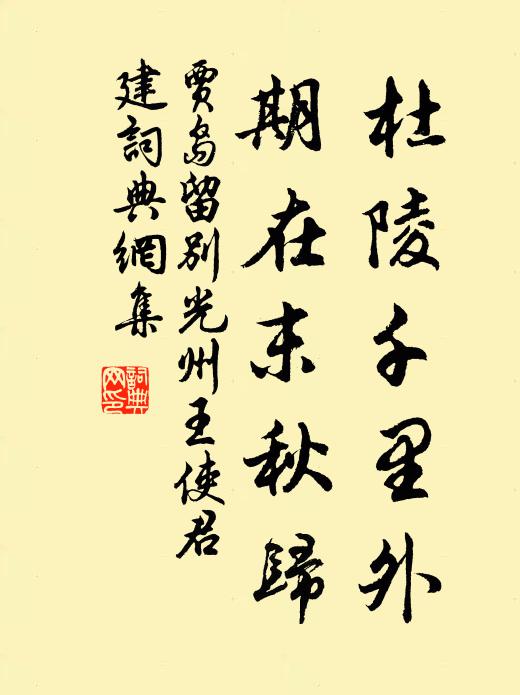 杜陵千里外
期在末秋歸
賈島留別光州王使君
建詞典網集
詞典
网印